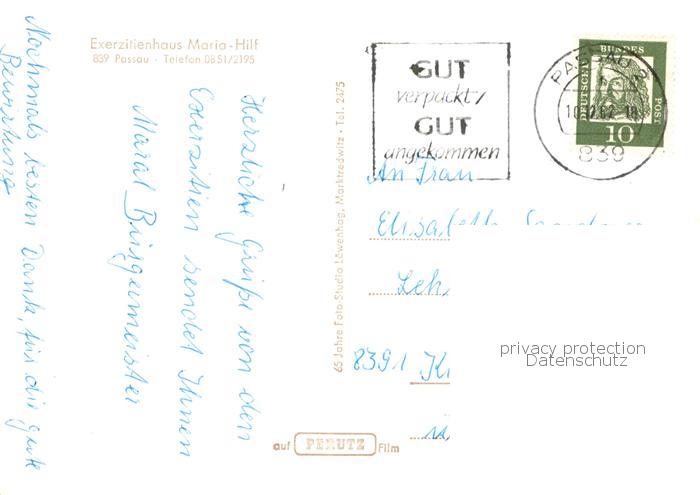 Exerzitienhaus Maria-Hilf
839 Passau · Telefon 0851/2195
Herzliche Grüße von den
Exerzitien sendet Ihnen
Maral Bürgermeister
Nochmals besten Dank, für die gute
Bewirtung
65 Jahre Foto-Studio Löwenhag, Marktredwitz · Tel. 2475
auf PERUTZ Film
GUT
verpackt,
GUT
angekommen
PASSAU 2
839
DEUTSCHE BUNDESPOST
10
An Frau
Elisabeth
Leh
8391
privacy protection
Datenschutz